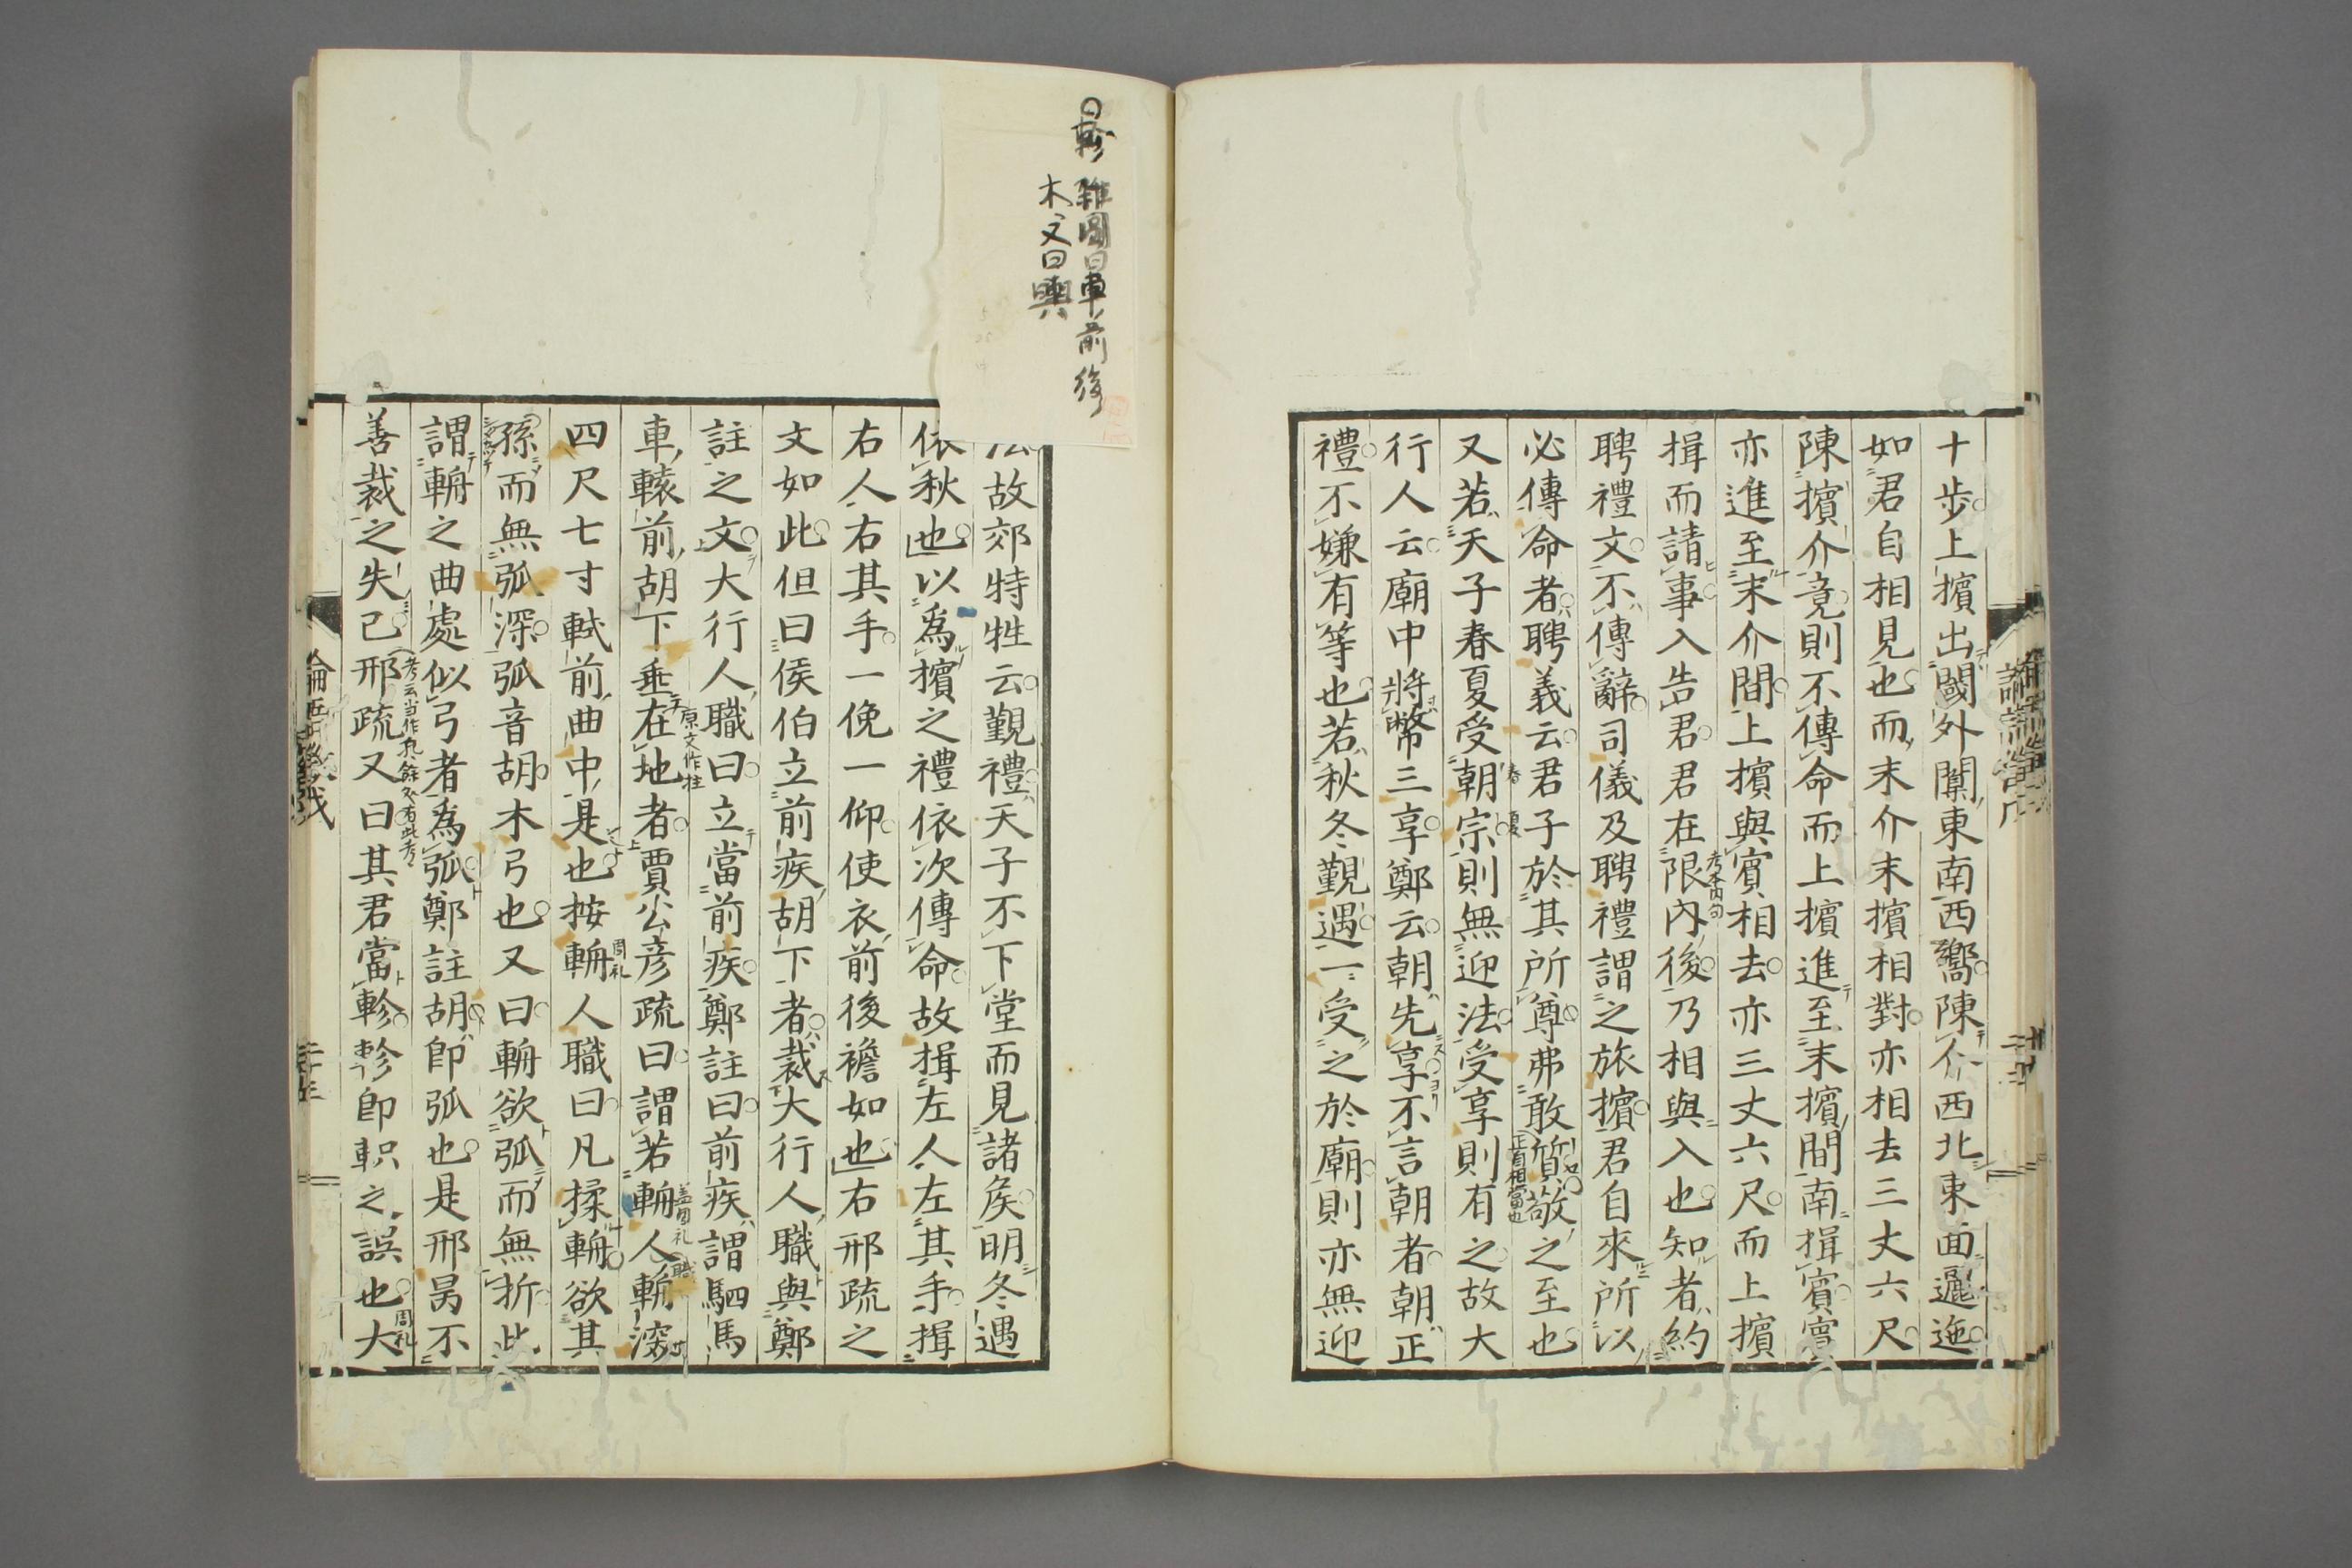 十步上擯出閾外闑東南西嚮陳介西北東面邐迤
如君自相見也而末介末擯相對亦相去三丈六尺
陳擯介竟則不傳命而上擯進至末擯間南揖賓賓
亦進至末介間上擯與賓相去亦三丈六尺而上擯
揖而請事入告君君在限內後乃相與入也知者約
聘禮文不傳辭司儀及聘禮謂之旅擯君自來所以
必傳命者聘義云君子於其所尊弗敢質敬之至也
又若天子春夏受朝宗則無迎法受享則有之故大
行人云廟中將幣三享鄭云朝先享不言朝者朝正
禮不嫌有等也若秋冬覲遇一受之於廟則亦無迎
法故郊特牲云覲禮天子不下堂而見諸侯明冬遇
依秋也以爲擯之禮依次傳命故揖左人左其手揖
右人右其手一俛一仰使衣前後襜如也右邢疏之
文如此但曰侯伯立前疾胡下者裁大行人職與鄭
註之文大行人職曰立當前疾鄭註曰前疾謂駟馬
車轅前胡下垂在地者賈公彦疏曰謂若輈人輈深
四尺七寸軾前曲中是也按輈人職曰凡揉輈欲其
孫而無弧深弧音胡木弓也又曰輈欲弧而無折此
謂輈之曲處似弓者爲弧鄭註胡卽弧也是邢昺不
善裁之失已邢疏又曰其君當軫軫卽軹之誤也大
原文作拄
周礼
周礼
日軫 雜圖曰車前後
木文曰輿